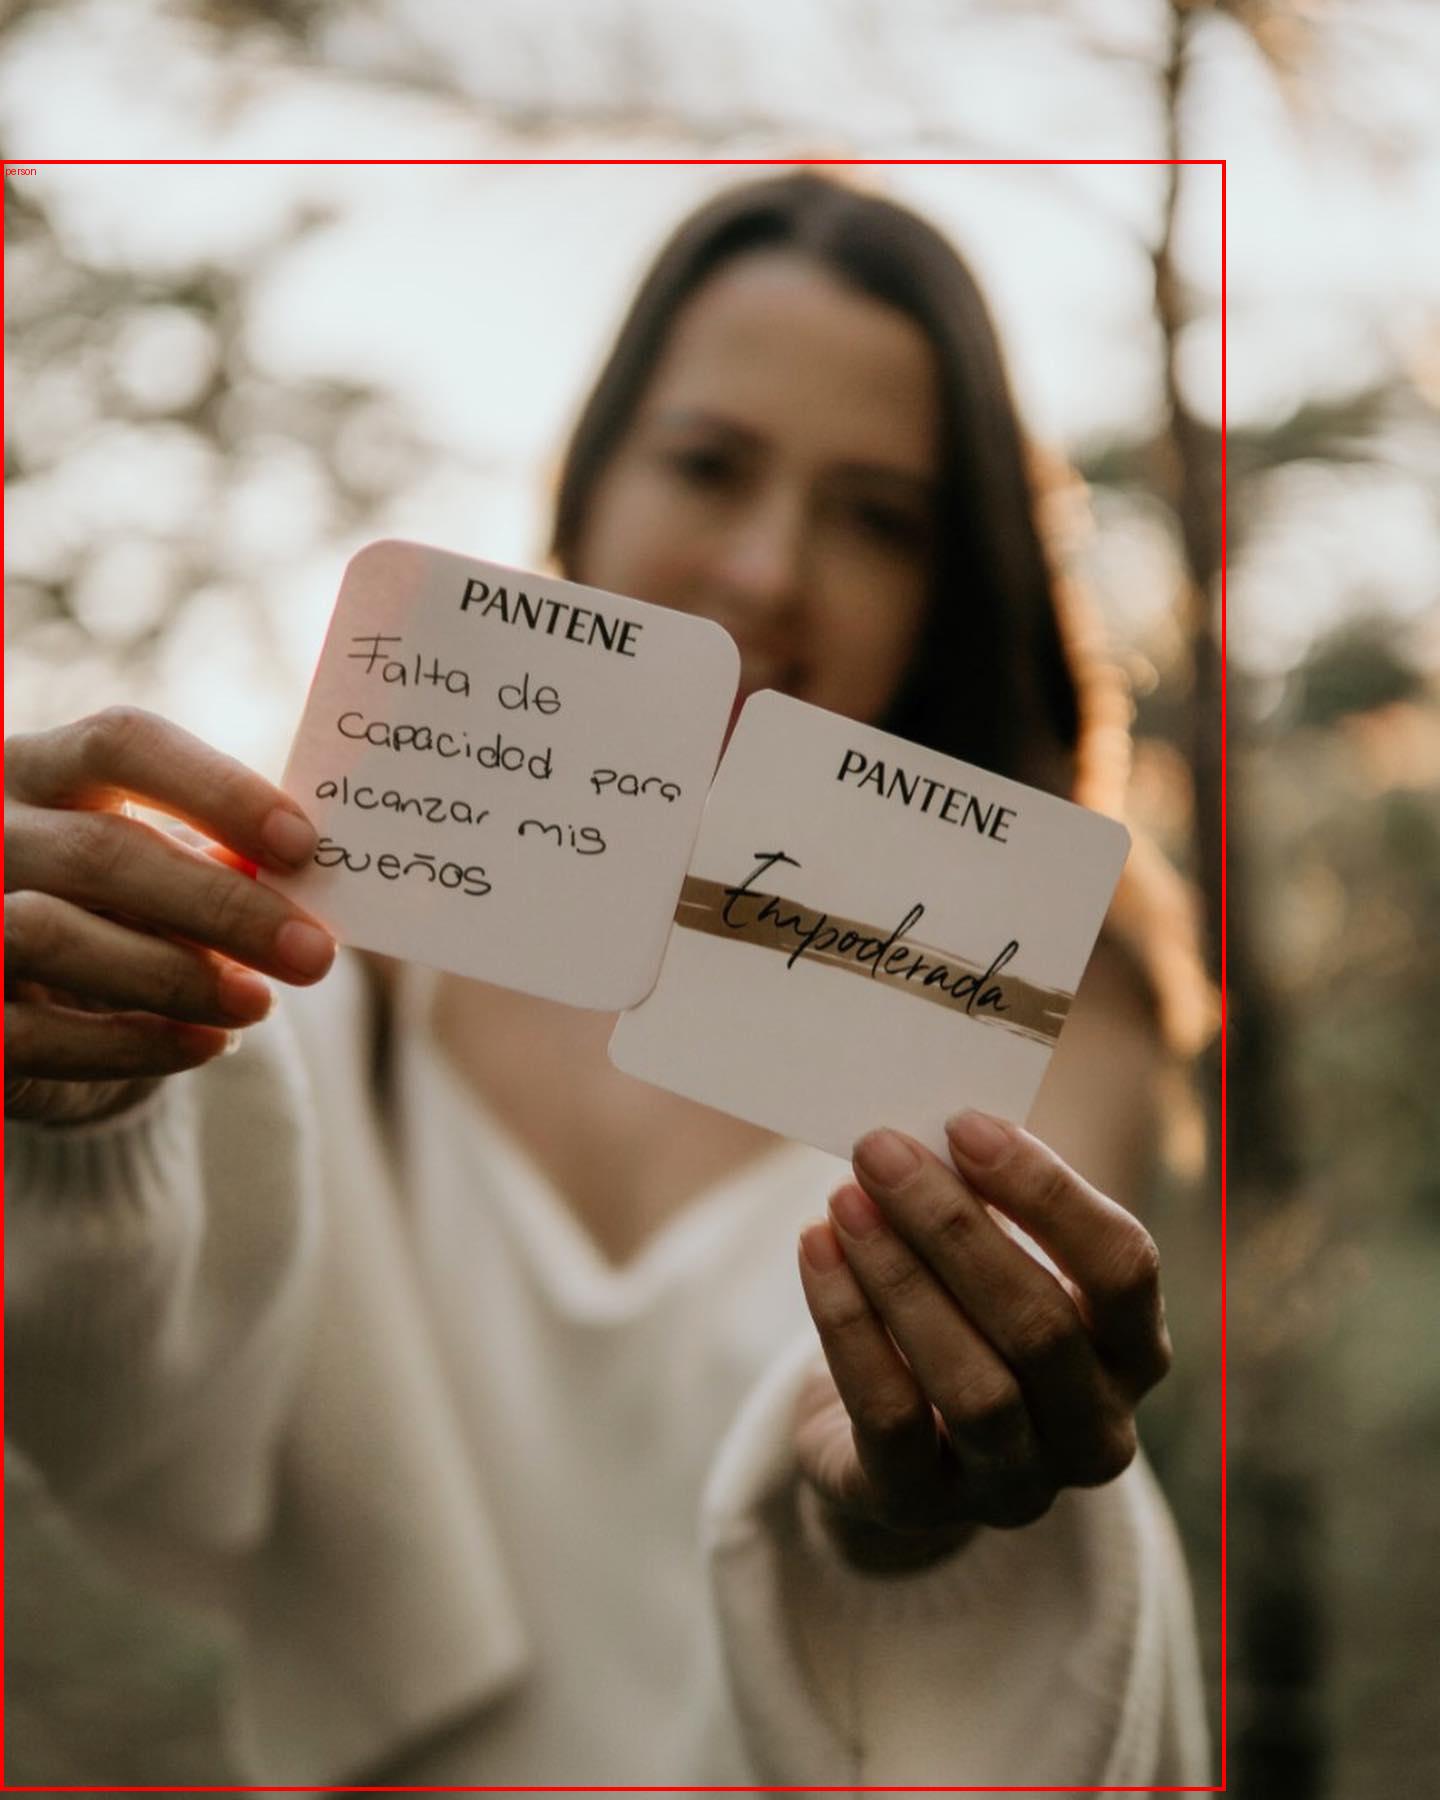 person
PANTENE
Falta de
capacidad para
alcanzar mis
sueños
PANTENE
Empoderada